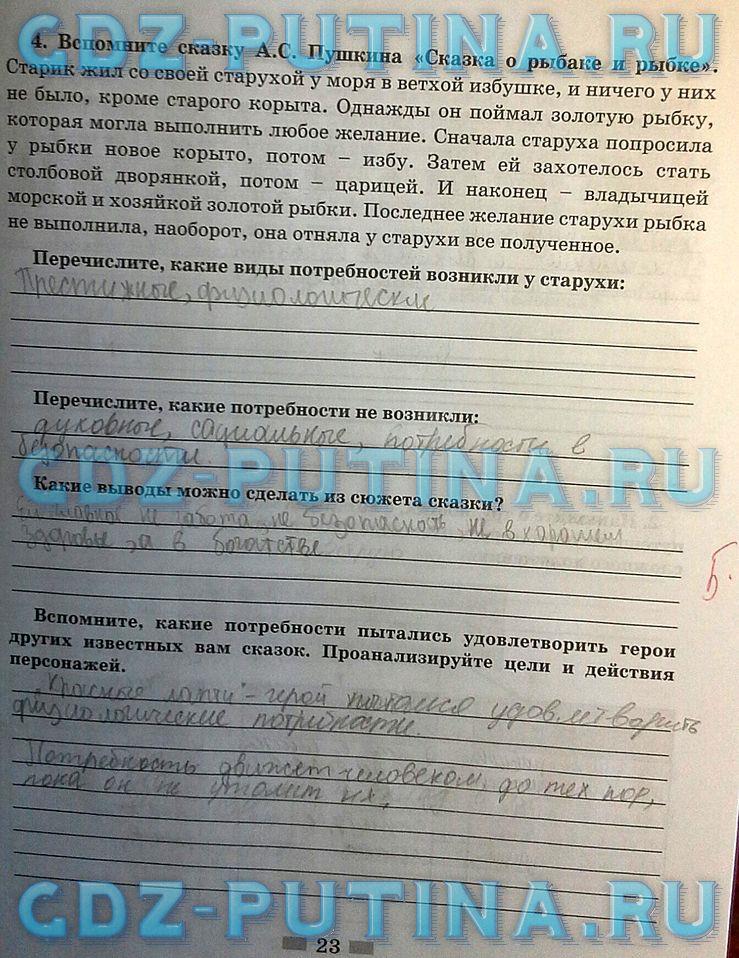 GDZ-PUTINA.RU
4. Вспомните сказку А.С. Пушкина «Сказка о рыбаке и рыбке».
Старик жил со своей старухой у моря в ветхой избушке, и ничего у них
не было, кроме старого корыта. Однажды он поймал золотую рыбку,
которая могла выполнить любое желание. Сначала старуха попросила
у рыбки новое корыто, потом – избу. Затем ей захотелось стать
столбовой дворянкой, потом – царицей. И наконец – владычицей
морской и хозяйкой золотой рыбки. Последнее желание старухи рыбка
не выполнила, наоборот, она отняла у старухи все полученное.
Перечислите, какие виды потребностей возникли у старухи:
Престижные, физиологические
Перечислите, какие потребности не возникли:
духовные, социальные, потребности в
безопасности.
GDZ-PUTINA.RU
Какие выводы можно сделать из сюжета сказки?
не забота, не безопасность, не в хорошем
здоровье, а в богатстве
Б.
Вспомните, какие потребности пытались удовлетворить герои
других известных вам сказок. Проанализируйте цели и действия
персонажей.
"Красные лапти" - герой пытался удовлетворить
физиологические потребности.
Потребность движет человеком до тех пор,
пока он не утолит их.
GDZ-PUTINA.RU
23